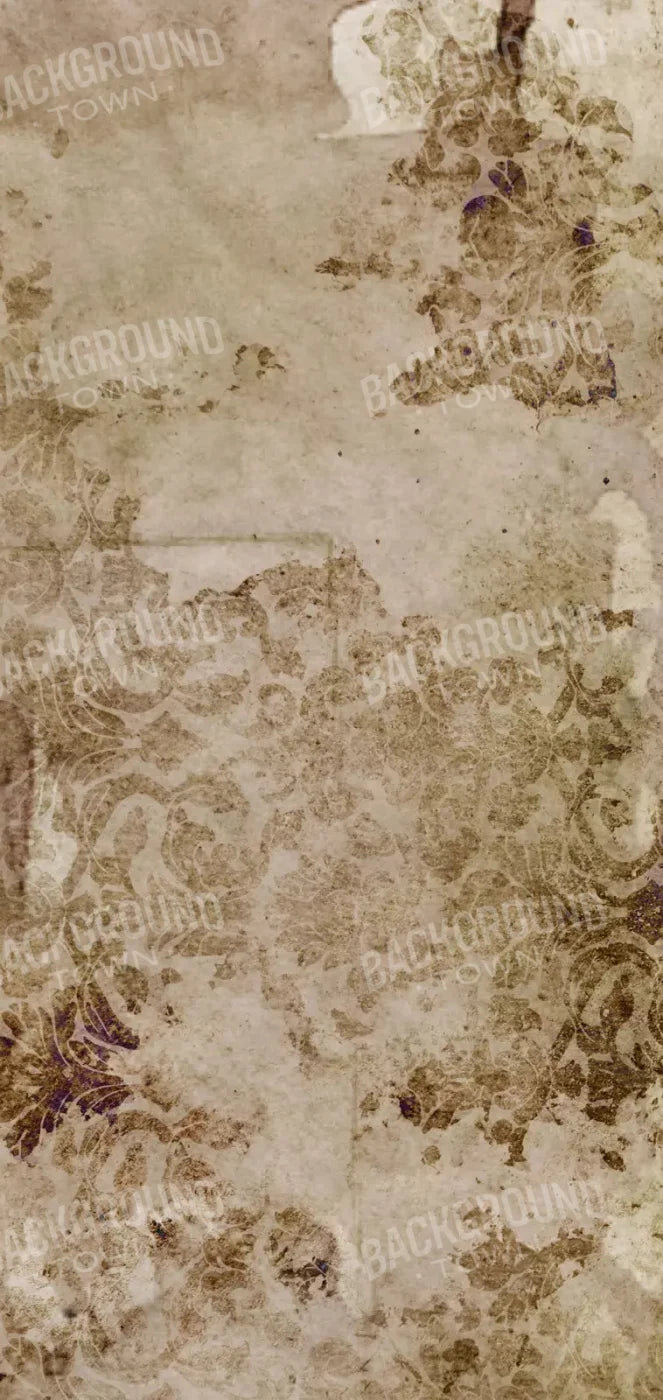 BACKGROUND
TOWN
BACKGROUND
TOWN
BACKGROUND
TOWN
BACKGROUND
TOWN
BACKGROUND
TOWN
BACKGROUND
TOWN
BACKGROUND
TOWN
BACKGROUND
TOWN
BACKGROUND
TOWN
BACKGROUND
TOWN